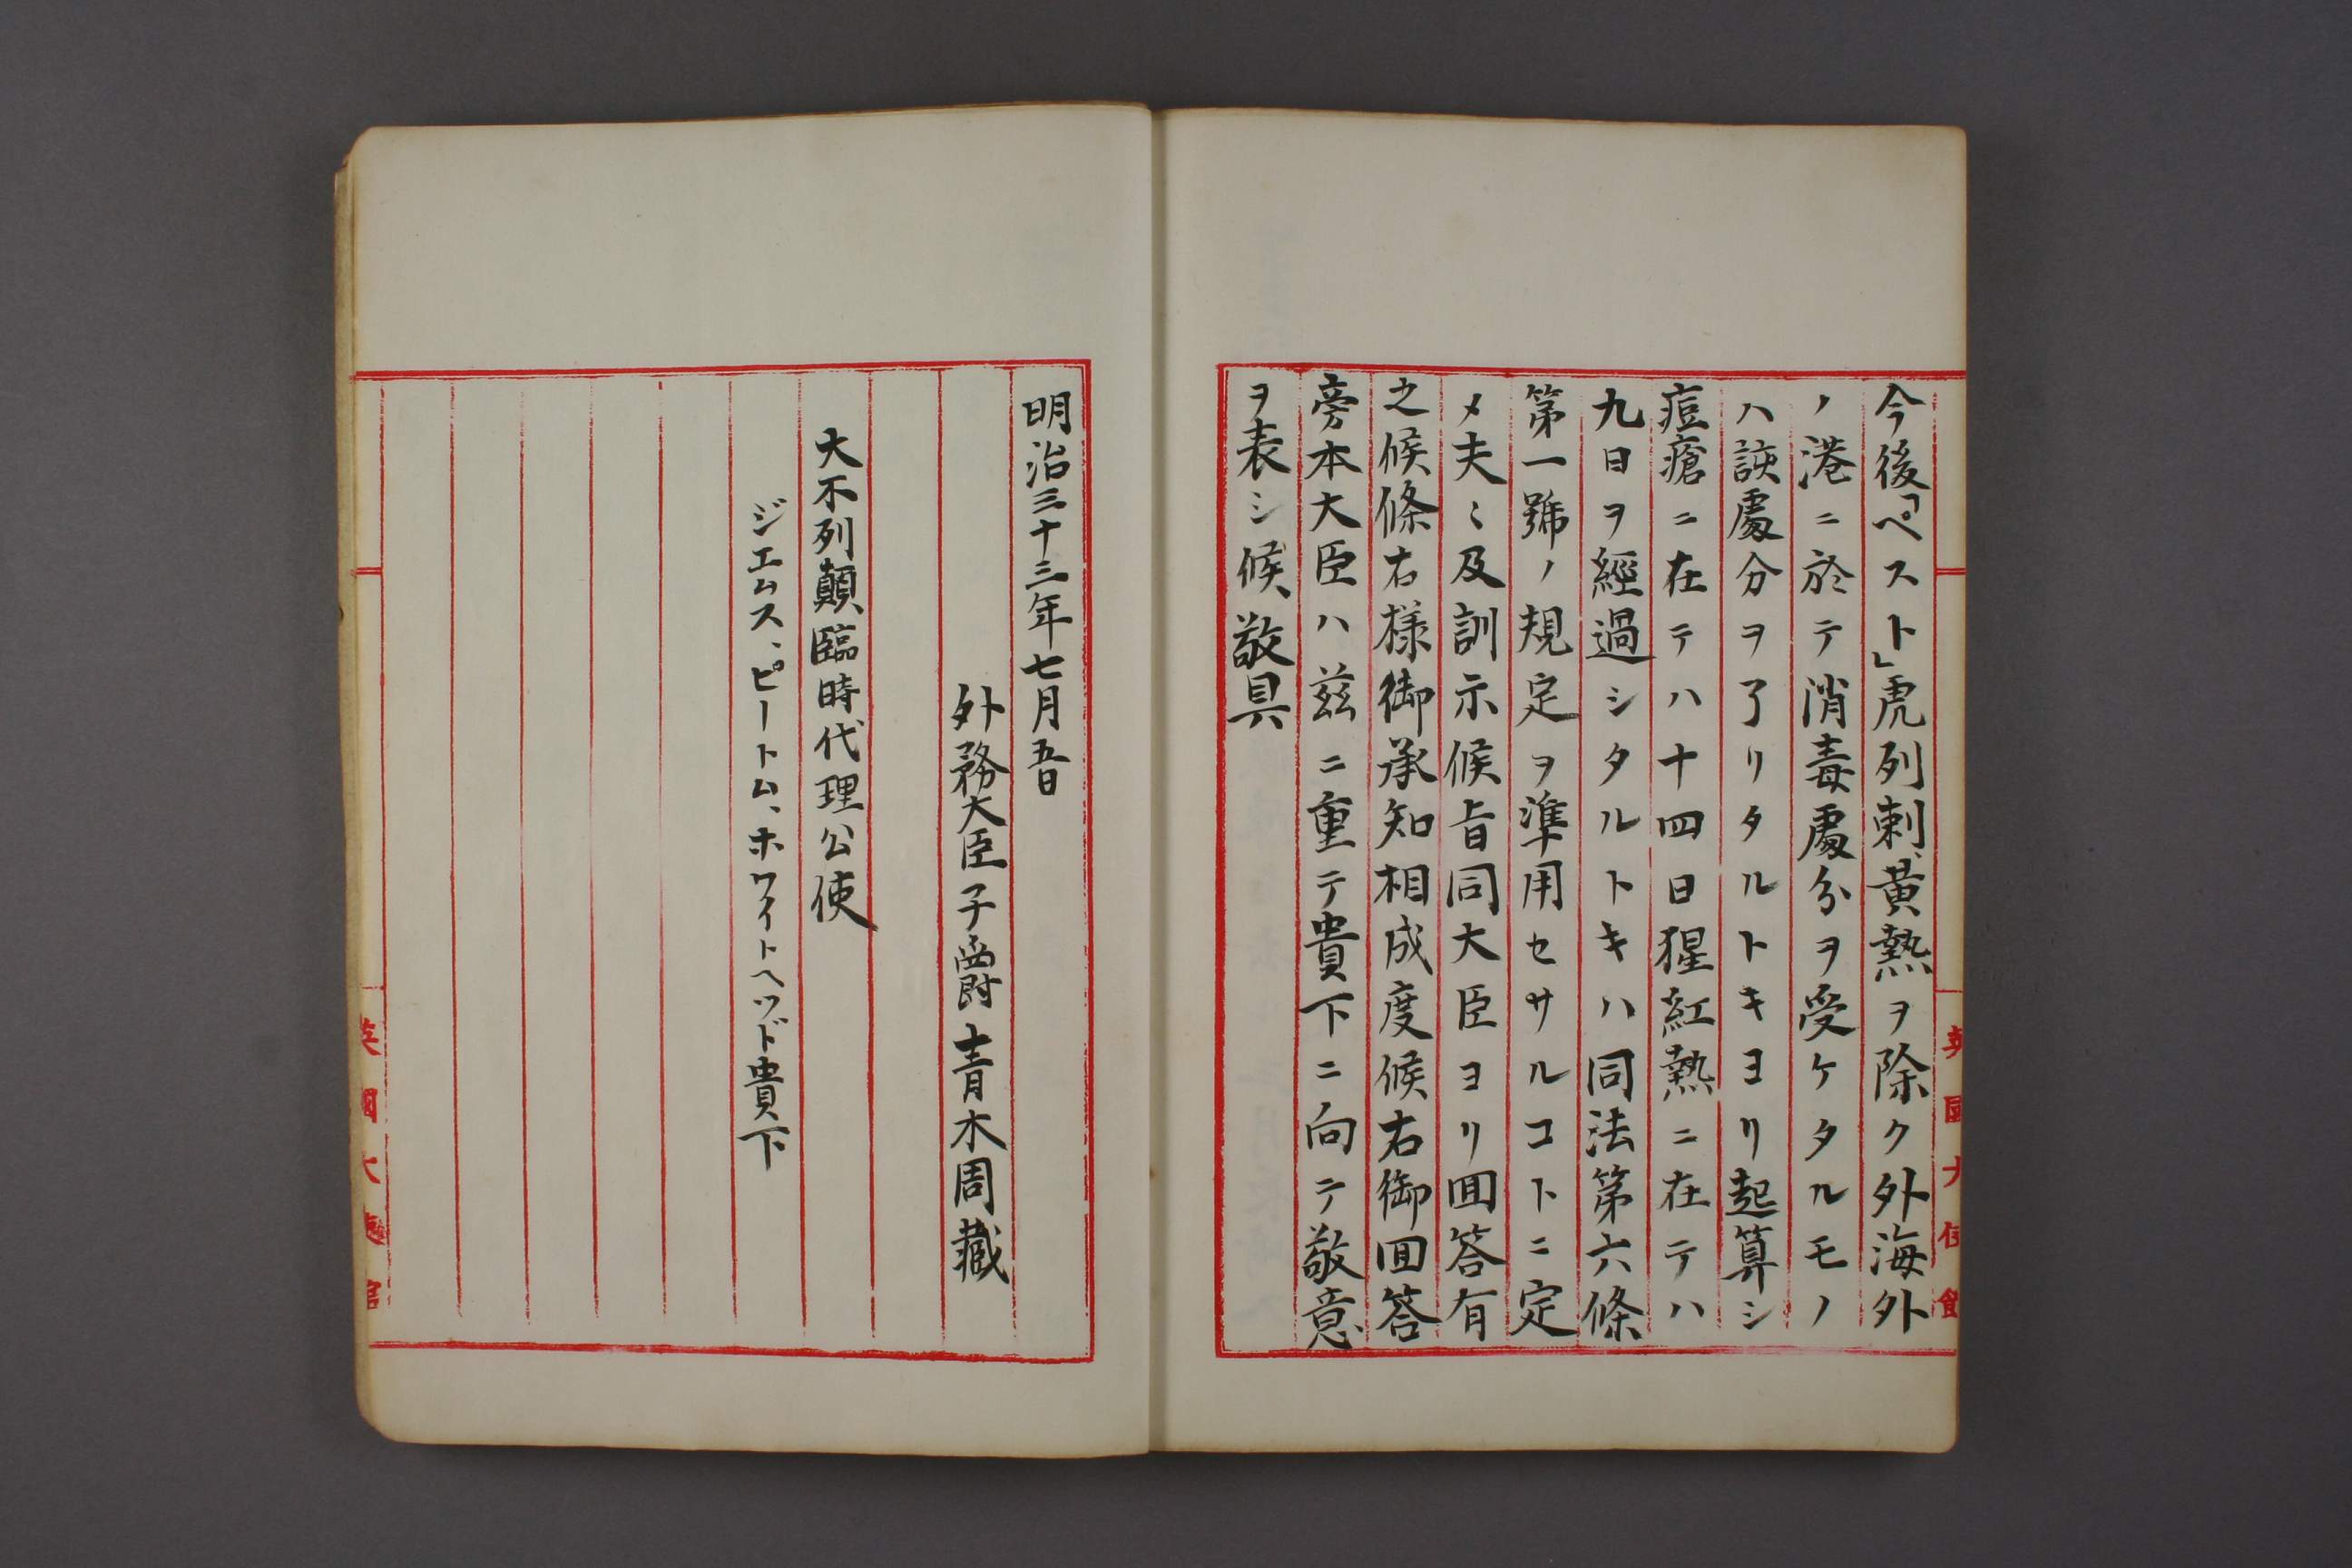 今後「ペスト」虎列剌、黃熱ヲ除ク外海外
ノ港ニ於テ消毒處分ヲ受ケタルモノ
ハ該處分ヲ了リタルトキヨリ起算シ
痘瘡ニ在テハ十四日猩紅熱ニ在テハ
九日ヲ經過シタルトキハ同法第六條
第一號ノ規定ヲ準用セサルコトニ定
メ夫〻及訓示候旨同大臣ヨリ回答有
之候條右様御承知相成度候右御回答
旁本大臣ハ茲ニ重テ貴下ニ向テ敬意
ヲ表シ候敬具
英國大使館
明治三十三年七月五日
外務大臣子爵青木周藏
大不列顛臨時代理公使
ジエムス、ピートム、ホワイトヘッド貴下
英國大使館